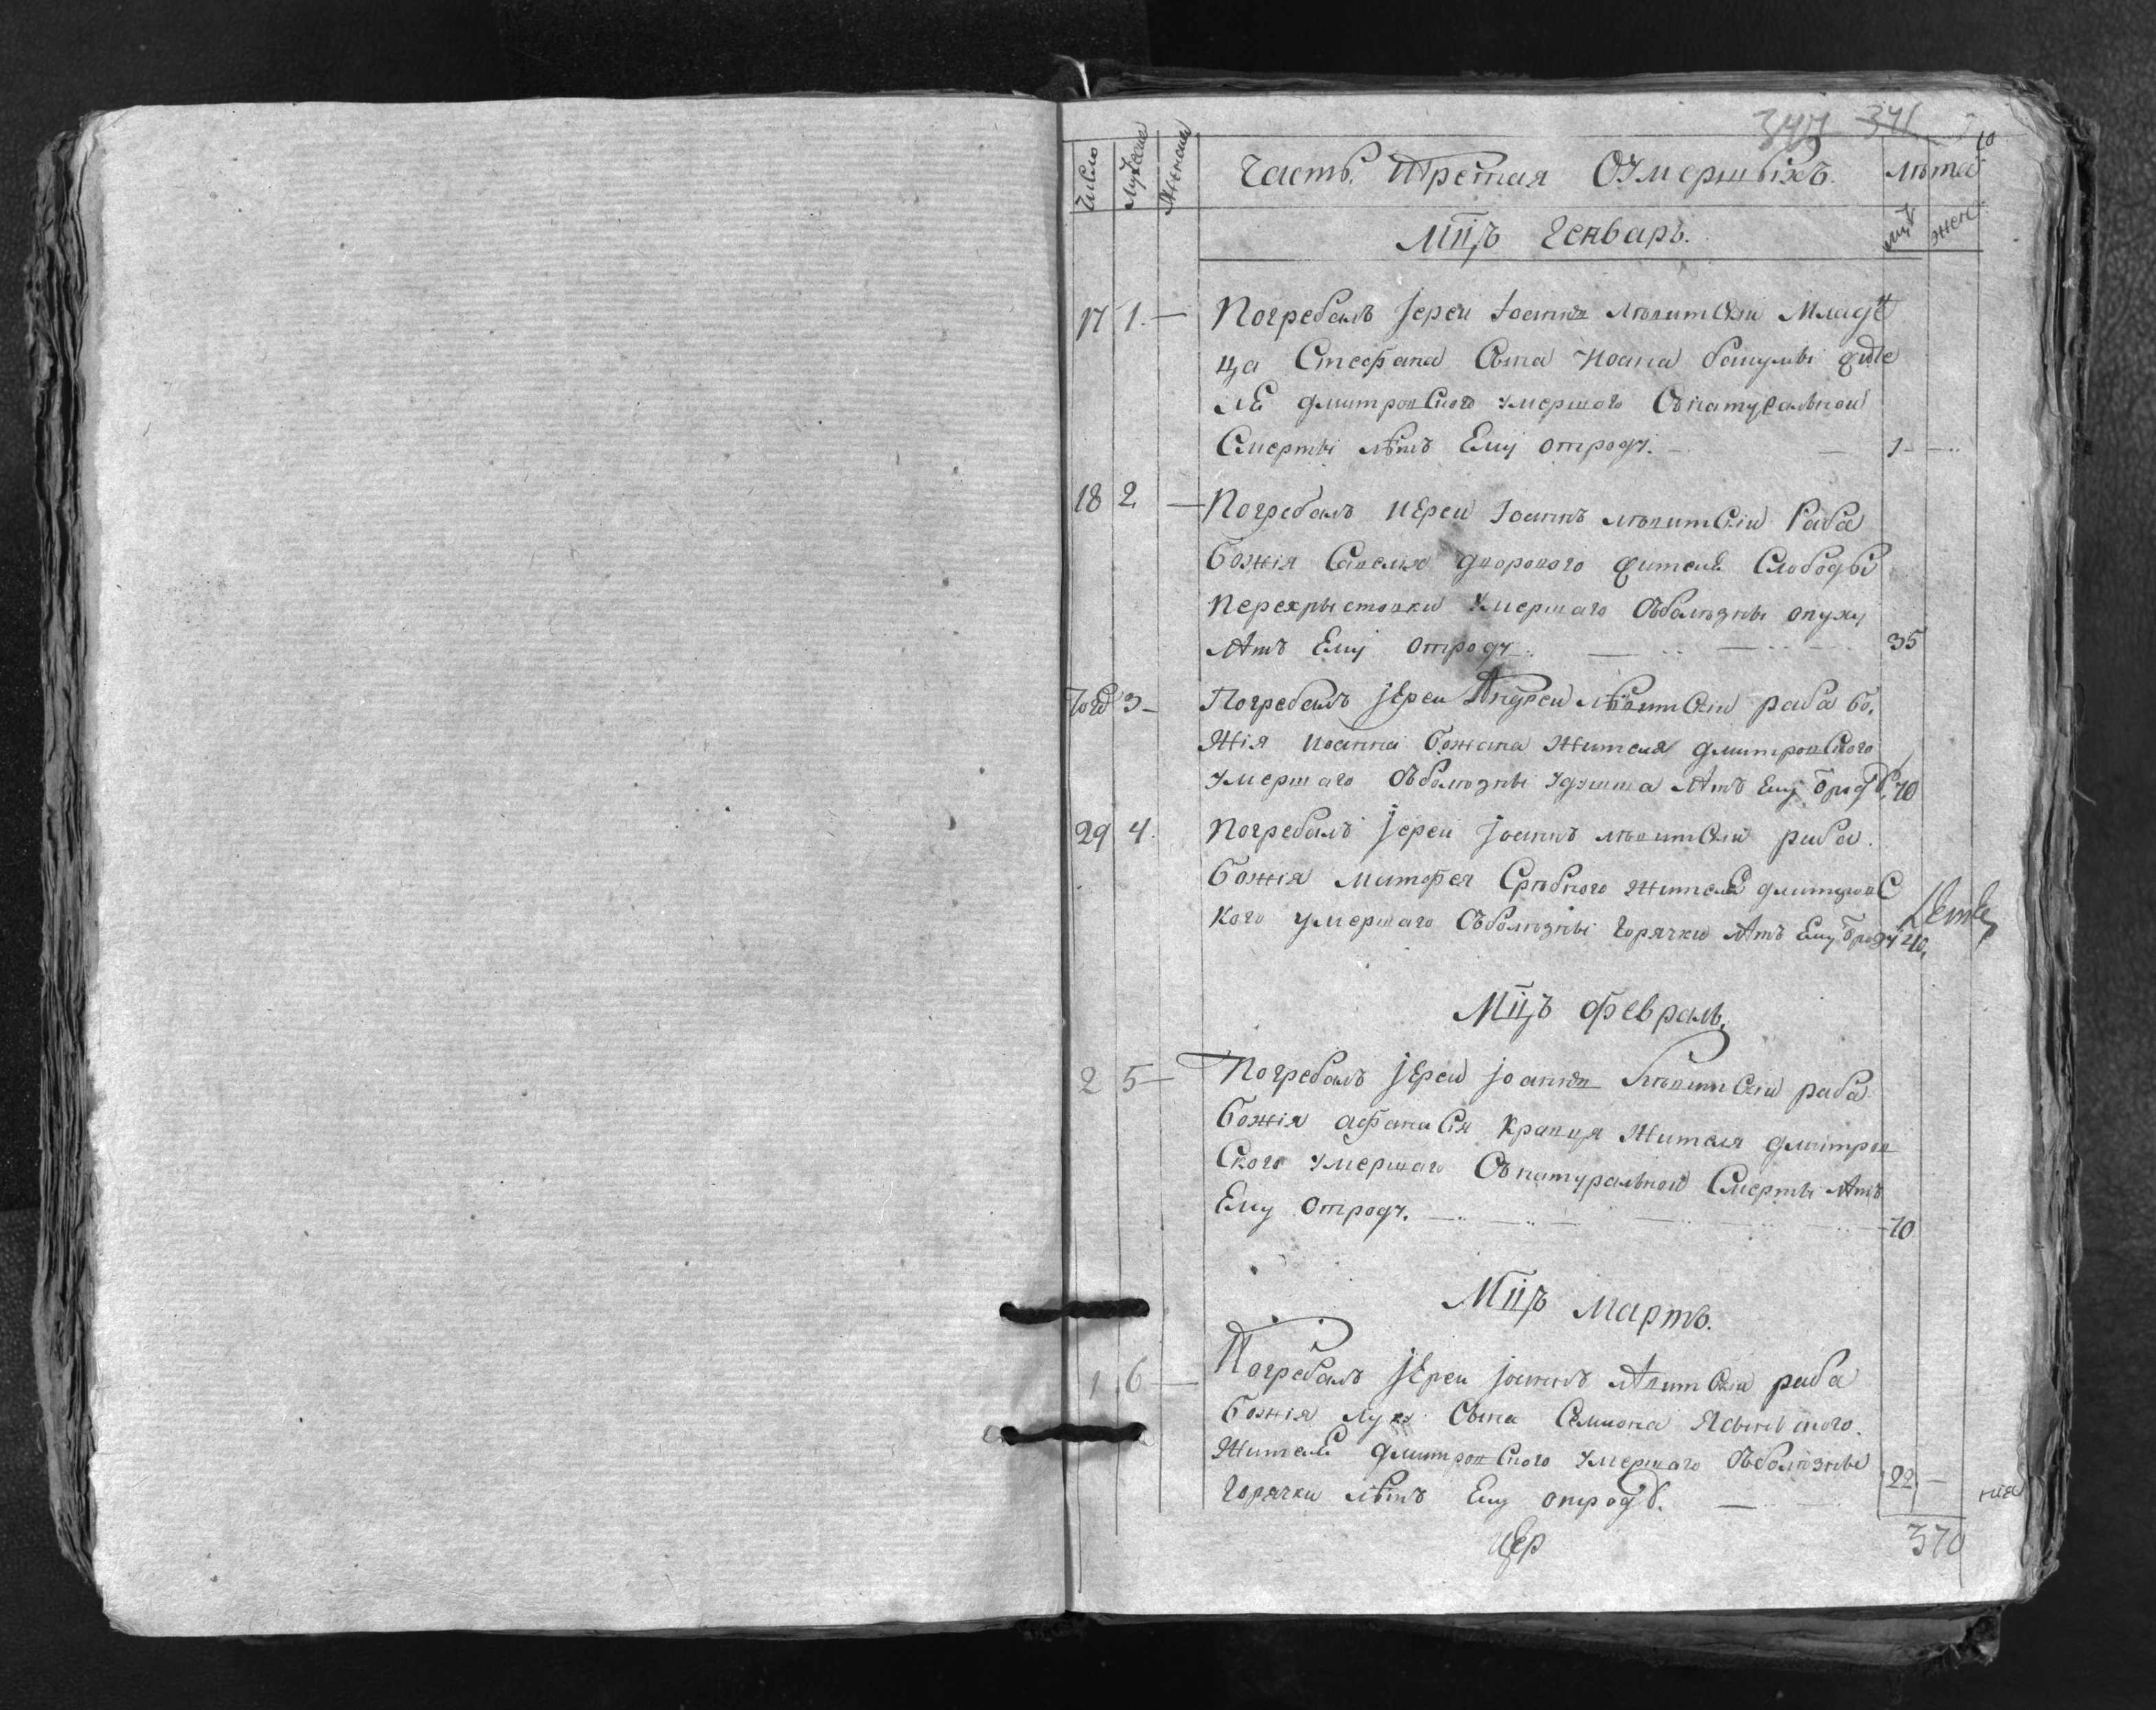 347 341
10
Число
Мужеска
Женска
Часть Третая Оумершыхъ.
Лѣта
муж
жен
Мцъ Генварь.
17 1. — Погребалъ іереи Іоаннъ Лѣвитскіи Младен
ца Стефана Сына Иоана жите
ля дмитровского умершаго Сънатуральной
Смерты лѣтъ Ему отродч. — 1 —
18 2 — Погребалъ иереи Іоаннъ лѣвитскіи Раба
Божія Савелия дворового жителя Слободы
Перехрыстовки умершаго Оъболѣзны опуху
Лѣтъ Ему отродч. 35
Тогд 3 — Погребалъ іереи Андреи лѣвитскіи раба Бо,
жія иоанна Божана жителя дмитровского
умершаго Оъболѣзны удушша Лѣтъ Ему 70
29 4. Погребалъ іереи іоаннъ лѣвитскіи раба
Божія митофея Срѣбного жителя дмитровс
кого умершаго Съболѣзны Горячки Лѣтъ Ему 40
Мцъ Февраль.
2 5 — Погребалъ іереи іоаннъ Лѣвитскіи раба
Божія афанасія Кравця жителя дмитров
ского умершаго Сънатуральной Смерты Лѣтъ
Ему Отродч. 70
Мцъ Мартъ.
1 6 — Погребалъ іереи іоаннъ Лѣвитскіи раба
Божія луки Сына Семиона
жителя дмитровского умершаго Оъболѣзны
Горячки лѣтъ Ему отрод. 22 —
иер
370